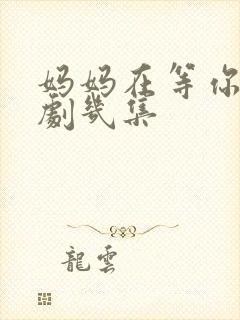 妈妈在等你
劇幾集
龍雲